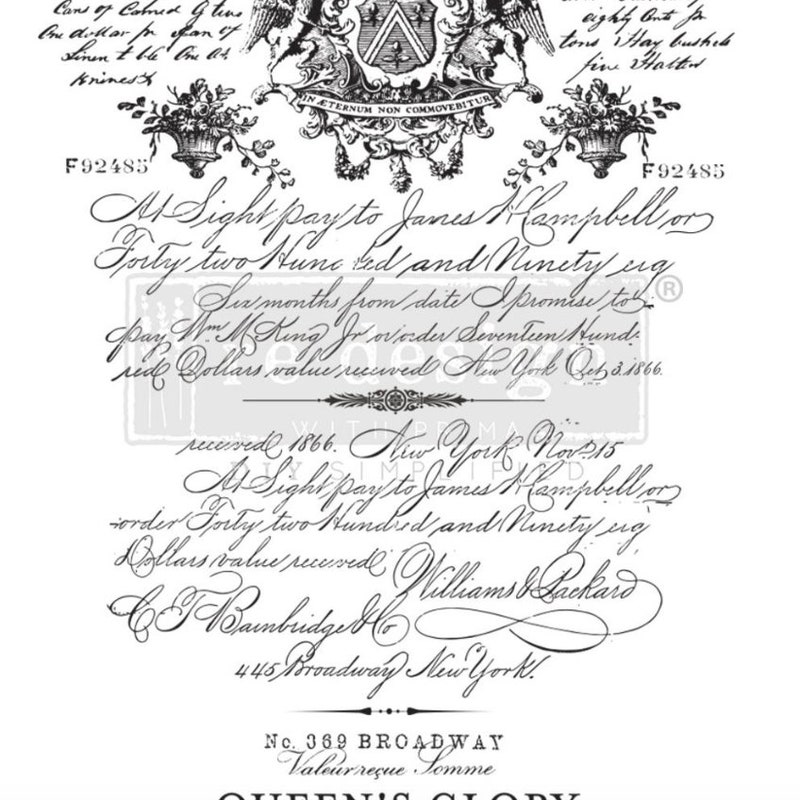 Cans of Calmed G
One dollar
Linen
eighty
tons Hay bushels
five
IN ÆTERNUM NON COMMOVEBITUR
F92485
F92485
At Sight pay to James W Campbell or
Forty two Hundred and Ninety eig
Six months from date I promise to
pay Wm M King Jr or order Seventeen Hund.
red Dollars value received New York Oct 3, 1866.
re design ®
WITH PRIMA
DIY SIMPLIFIED
received 1866. New York Nov. 15
At Sight pay to James W Campbell or
order Forty two Hundred and Ninety eig
Dollars value received
Williams & Packard
C T Bainbridge & Co
445 Broadway New York.
No. 369 BROADWAY
Valeur reçue Somme
QUEEN'S GLORY